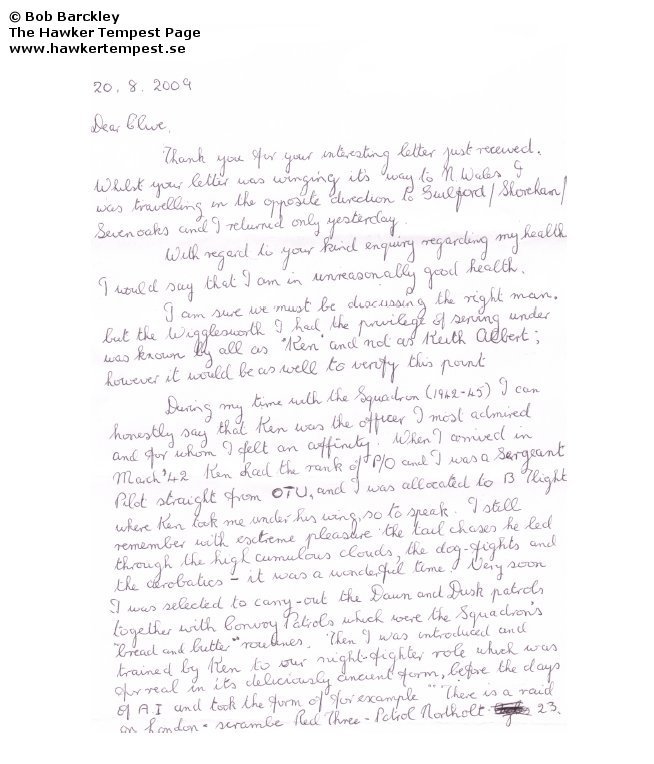 © Bob Barckley
The Hawker Tempest Page
www.hawkertempest.se
20. 8. 2009
Dear Clive,
Thank you for your interesting letter just received.
Whilst your letter was winging it's way to N Wales I
was travelling in the opposite direction to Guilford/Shoreham/
Sevenoaks and I returned only yesterday.
With regard to your kind enquiry regarding my health
I would say that I am in unreasonally good health.
I am sure we must be discussing the right man.
but the Wigglesworth I had the privilege of serving under
was known by all as "Ken" and not as Keith Albert;
however it would be as well to verify this point
During my time with the Squadron (1942-45) I can
honestly say that Ken was the officer I most admired
and for whom I felt an affinity. When I arrived in
March '42 Ken had the rank of P/O and I was a Sergeant
Pilot straight from OTU, and I was allocated to B Flight
where Ken took me under his wing, so to speak. I still
remember with extreme pleasure the tail chases he led
through the high cumulous clouds, the dog-fights and
the aerobatics - it was a wonderful time. Very soon
I was selected to carry-out the Dawn and Dusk patrols
together with Convoy Patrols which were the Squadron's
"bread and butter" routines. Then I was introduced and
trained by Ken to our night-fighter role which was
for real in its deliciously ancient form, before the days
of A.I and took the form of for example "There is a raid
on London - scramble Red Three - Patrol Northolt 23.